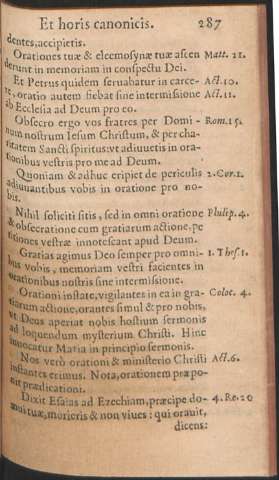 Et horis canonicis. 287
dentes, accipietis.
Orationes tuæ & eleemosynæ tuæ ascen Matt. 21.
derunt in memoriam in conspectu Dei.
Et Petrus quidem seruabatur in carce- Act. 10.
re, oratio autem fiebat sine intermissione Act. 11.
ab Ecclesia ad Deum pro eo.
Obsecro ergo vos fratres per Domi- Rom. 15.
num nostrum Iesum Christum, & per cha-
ritatem Sancti spiritus: vt adiuuetis in ora-
tionibus vestris pro me ad Deum.
Quoniam & adhuc eripiet de periculis 2. Cor. 1.
adiuuantibus vobis in oratione pro no-
bis.
Nihil soliciti sitis, sed in omni oratione Philip. 4.
& obsecratione cum gratiarum actione, pe
titiones vestræ innotescant apud Deum.
Gratias agimus Deo semper pro omni- 1. Thes. 1.
bus vobis, memoriam vestri facientes in
orationibus nostris sine intermissione.
Orationi instate, vigilantes in ea in gra- Coloc. 4.
tiarum actione, orantes simul & pro nobis,
vt Deus aperiat nobis hostium sermonis
ad loquendum mysterium Christi. Hinc
inuocatur Maria in principio sermonis.
Nos verò orationi & ministerio Christi Act. 6.
instantes erimus. Nota, orationem præpo-
nit prædicationi.
Dixit Esaias ad Ezechiam, præcipe do- 4. Re. 20
mui tuæ, morieris & non viues: qui orauit,
dicens: